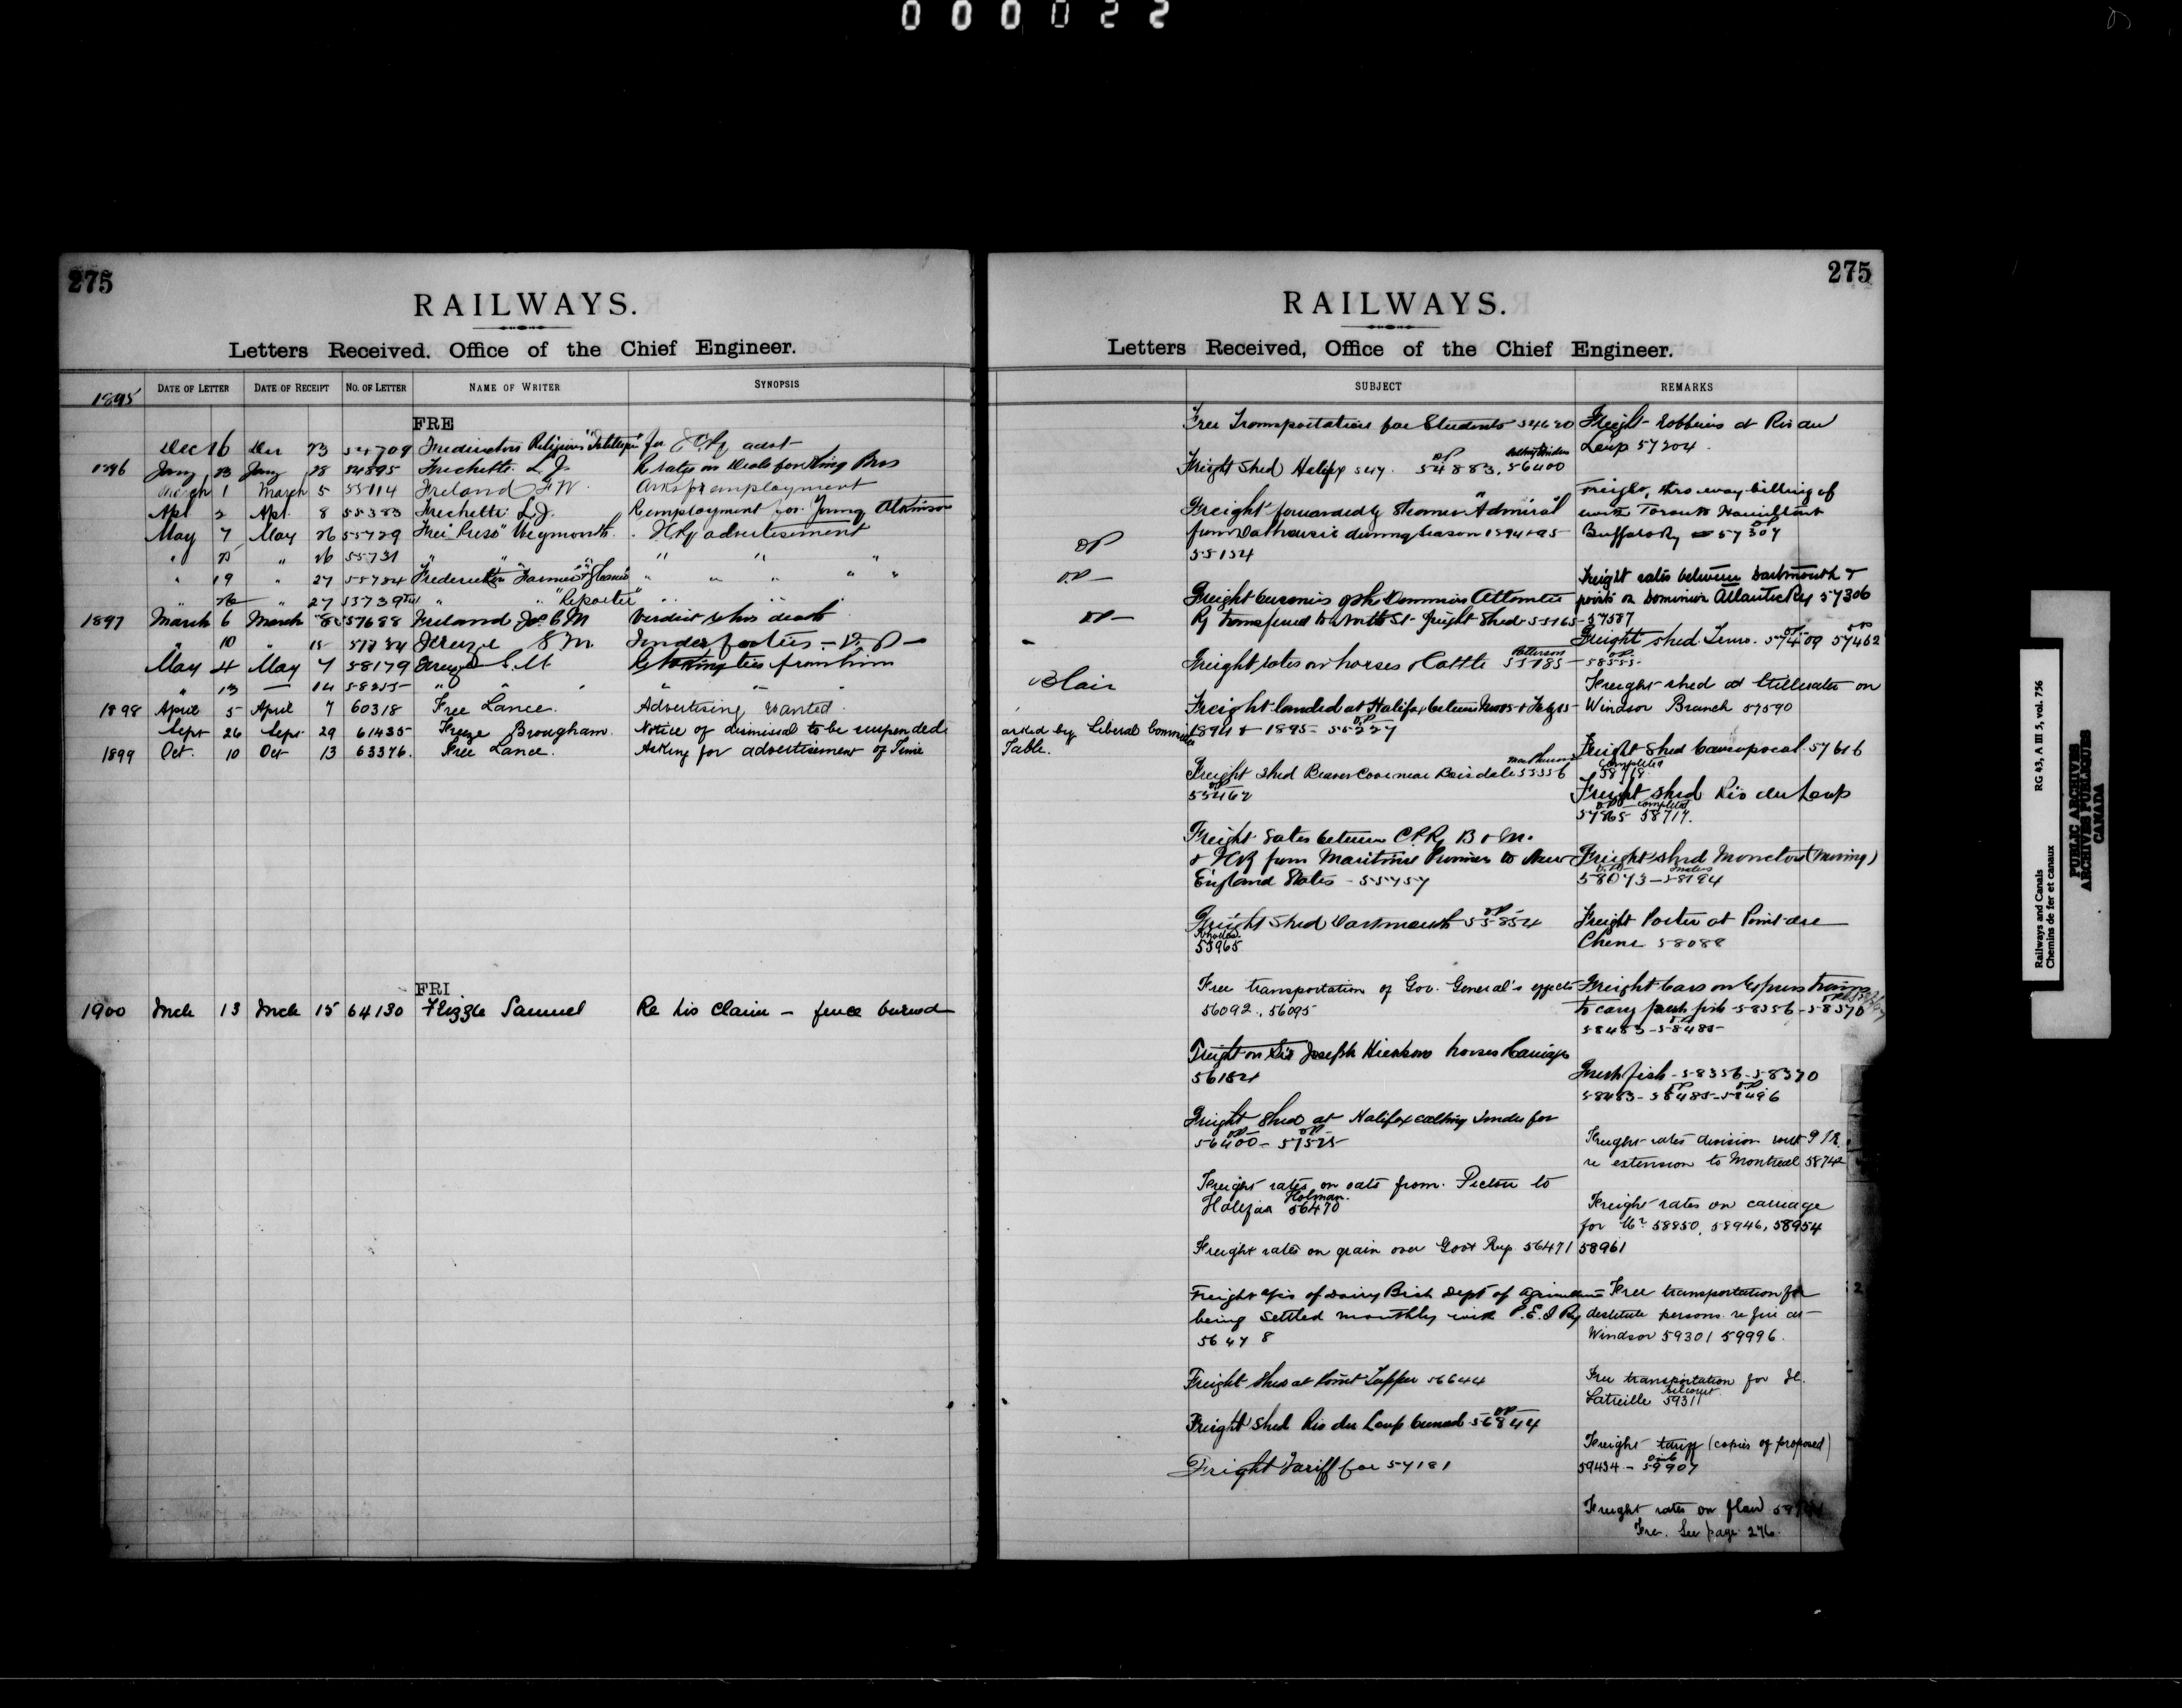 000022
275
RAILWAYS.
Letters Received. Office of the Chief Engineer.
1895 DATE OF LETTER DATE OF RECEIPT NO. OF LETTER NAME OF WRITER SYNOPSIS
FRE
Dec 16 Dec 23 54709 Fredericton Religious Intelligencer for ICRy advt
1896 Jany 23 Jany 28 54895 Frechette L.J. Re rates on Deals for King Bros
March 1 March 5 55114 Freland F W. Asks for employment
Apl 2 Apl. 8 55383 Frechette L.J. Re employment for Young Atkinson
May 7 May 26 55729 Free Press Weymouth. ICRy advertisement
" 25 " 26 55731 " " " " "
" 19 " 27 55734 Fredericton Farmer " " " " "
" 26 " 27 55739 " " "Reporter" " " "
1897 March 6 March 8 57688 Freland Verdict re his death
" 10 " 15 57734 Freeze S M. Tender for ties
May 4 May 7 58179 Freeze S.M. Re taking ties from him
" 13 — 14 58255 " " " " " "
1898 April 5 April 7 60318 Free Lance. Advertising wanted.
Sept 26 Sept 29 61435 Freeze Brougham. Notice of dismissal to be suspended
1899 Oct. 10 Oct 13 63376. Free Lance. Asking for advertisement of Time
FRI
1900 Mch 13 Mch 15 64130 Frizzle Samuel Re his claim – fence burned
275
RAILWAYS.
Letters Received, Office of the Chief Engineer.
SUBJECT REMARKS
OP
OP —
OP —
Blair
asked by Liberal Committee
Table.
Free Transportation for Students 54620
Freight Shed Halifax 54883, 56400
Freight forwarded by Steamer "Admiral"
from Dalhousie during Season 1894 & 95
55134
Freight business of the Dominion Atlantic
Ry transferred to North St. freight Shed 55165 – 57587
Freight rates on horses & Cattle 55185 – 58555
Freight landed at Halifax between
1894 & 1895 – 55227
Freight Shed Beaver Cove near Boisdale 55356
55462
Freight rates between C.P.R, B & M.
& ICR from Maritime Provinces to New
England States – 55757
Freight Shed Dartmouth 55854
Rhodes
55965
Free transportation of Gov. General's effects
56092, 56095
Freight on Sir Joseph Hickson horses & carriages
56154
Freight Shed at Halifax calling Tender for
56400 – 57525
Freight rates on oats from Pictou to
Halifax Holman. 56470
Freight rates on grain over Govt Rys 56471
Freight a/cs of Dairy Bch Dept of Agriculture
being settled monthly with P.E.I Ry
56478
Freight Shed at Point Tupper 56644
Freight Shed Riv du Loup burned 56844
Freight Tariff for 57181
Freight robberies at Riv du
Loup 57204.
Freight, thro way-billing of
with Toronto Hamilton &
Buffalo Ry 57307
Freight rates between Dartmouth &
points on Dominion Atlantic Ry 57306
Freight shed Truro. 57409 57462
Freight shed at Stillwater on
Windsor Branch 57590
Freight Shed Causapscal 57616
Completed
58718.
Freight Shed Riv du Loup
completed
57865 58717.
Freight Shed Moncton (moving)
58073 – 58194
Freight Porter at Point du
Chene 58088
Freight Cars on Express trains
to carry fresh fish – 58356 – 58370
58483 – 58485
Fresh fish – 58356 – 58370
58483 – 58485 – 58496
Freight rates division with G T R.
re extension to Montreal 58742
Freight rates on carriage
for Mr 58850, 58946, 58954
58961
Free transportation for
destitute persons re fire at
Windsor 59301 59996.
Free transportation for
Latreille 59311
Freight tariff (copies of proposed)
59434 – 59907
Freight rates on flour
Fre. See page 276.
Railways and Canals RG 43, A III 5, vol. 756
Chemins de fer et canaux
PUBLIC ARCHIVES
ARCHIVES PUBLIQUES
CANADA